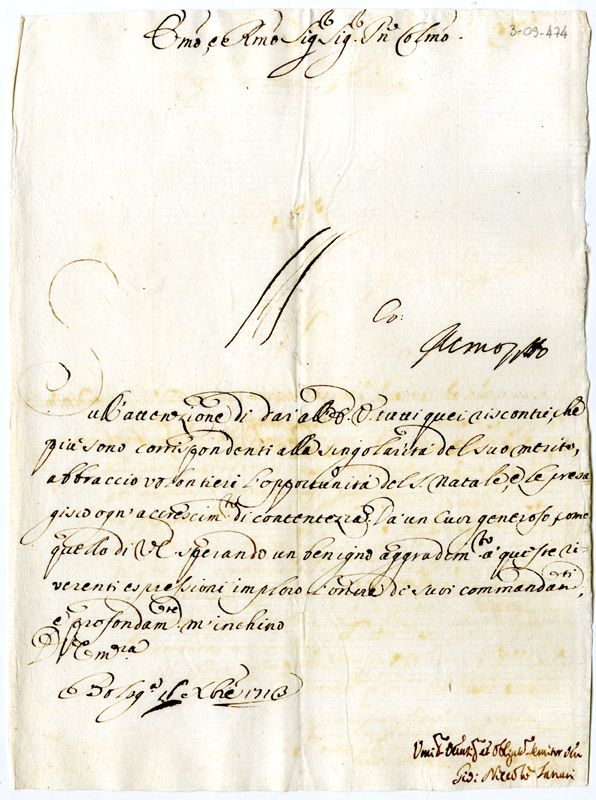 Emo, e Rmo Sig. Sig. Pne Colmo.
3-09-474
Co:
Sull'attenzione di dar all'E. V. tutti quei riscontri, che
più sono corrispondenti alla singolarità del suo merito,
abbraccio volontieri l'opportunità del S. Natale, e le presa
gisco ogn'accrescim.to di contentezza. Da un Cuor generoso come
quello di V.E. sperando un benigno aggradem.to a' queste ri-
verenti espressioni imploro l'onore de' suoi commandam.ti,
e profondam.te m'inchino
D. V. Em.za
Bolog.a Xbre 1713
Niccolò Tanari